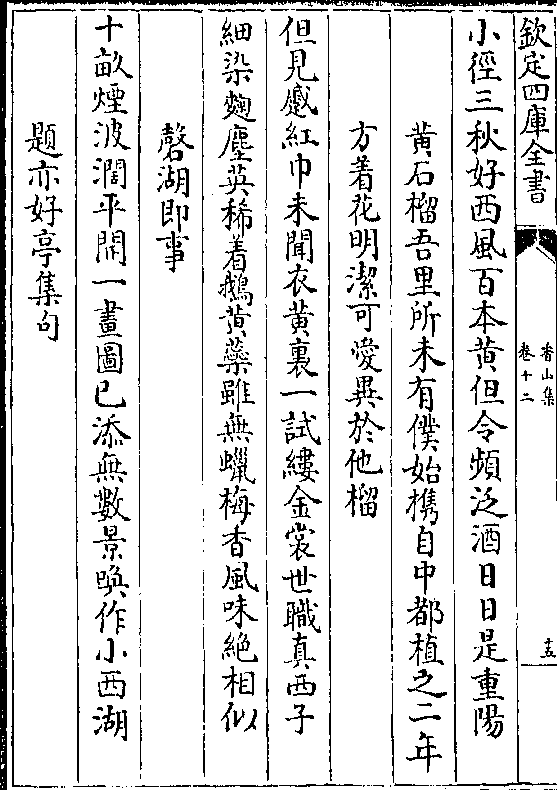 欽定四庫全書
香山集
卷十二
十五
小徑三秋好西風百本黄但令頻泛酒日日是重陽
黄石榴吾里所未有僕始攜自中都植之二年
方着花明潔可愛異於他榴
但見蹙紅巾未聞衣黄裏一試縷金裳世職真西子
細染麴塵英稀着鵝黄蘂雖無蠟梅香風味絶相似
磬湖即事
十畝煙波濶平開一畫圖已添無數景喚作小西湖
題亦好亭集句